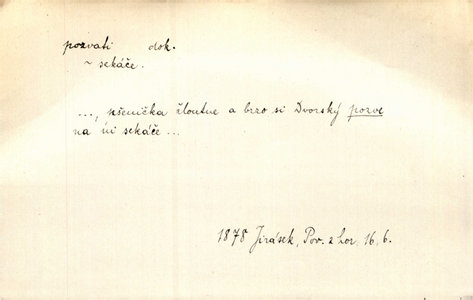 pozvati dok.
~ sekáče.
..., pšenička žloutne a brzo si Dvorský pozve
na ni sekáče ...
1878 Jirásek, Pov. z hor. 16, 6.